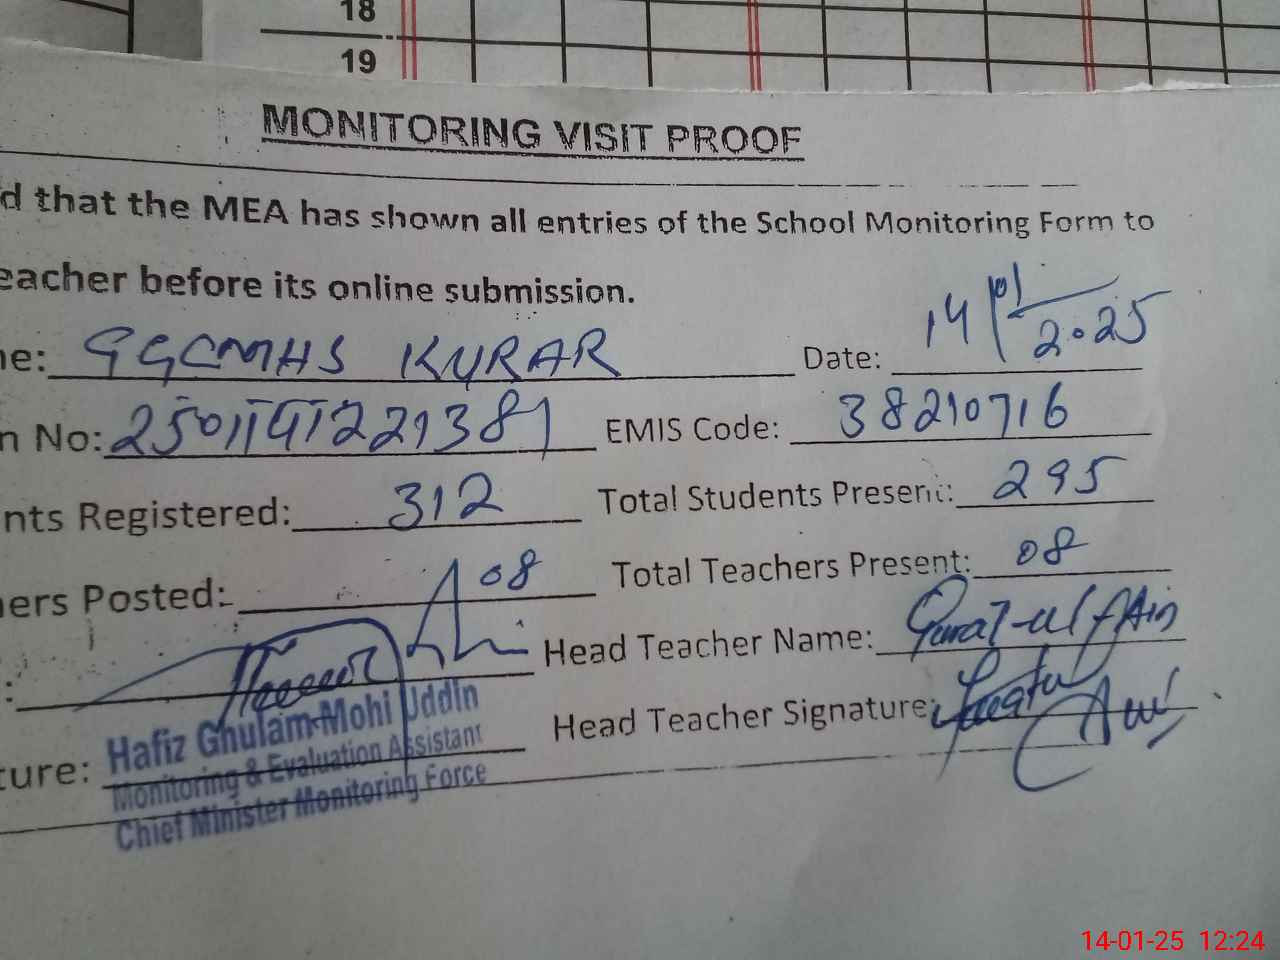 18
19
MONITORING VISIT PROOF
d that the MEA has shown all entries of the School Monitoring Form to
eacher before its online submission.
ne: GGCMHS KURAR Date: 14/01/2025
n No: EMIS Code: 38210716
nts Registered: 312 Total Students Present: 295
ners Posted: 08 Total Teachers Present: 08
: Head Teacher Name: Qurat-ul-Ain
ture: Head Teacher Signature:
Hafiz Ghulam Mohi Uddin
Monitoring & Evaluation Assistant
Chief Minister Monitoring Force
14-01-25 12:24